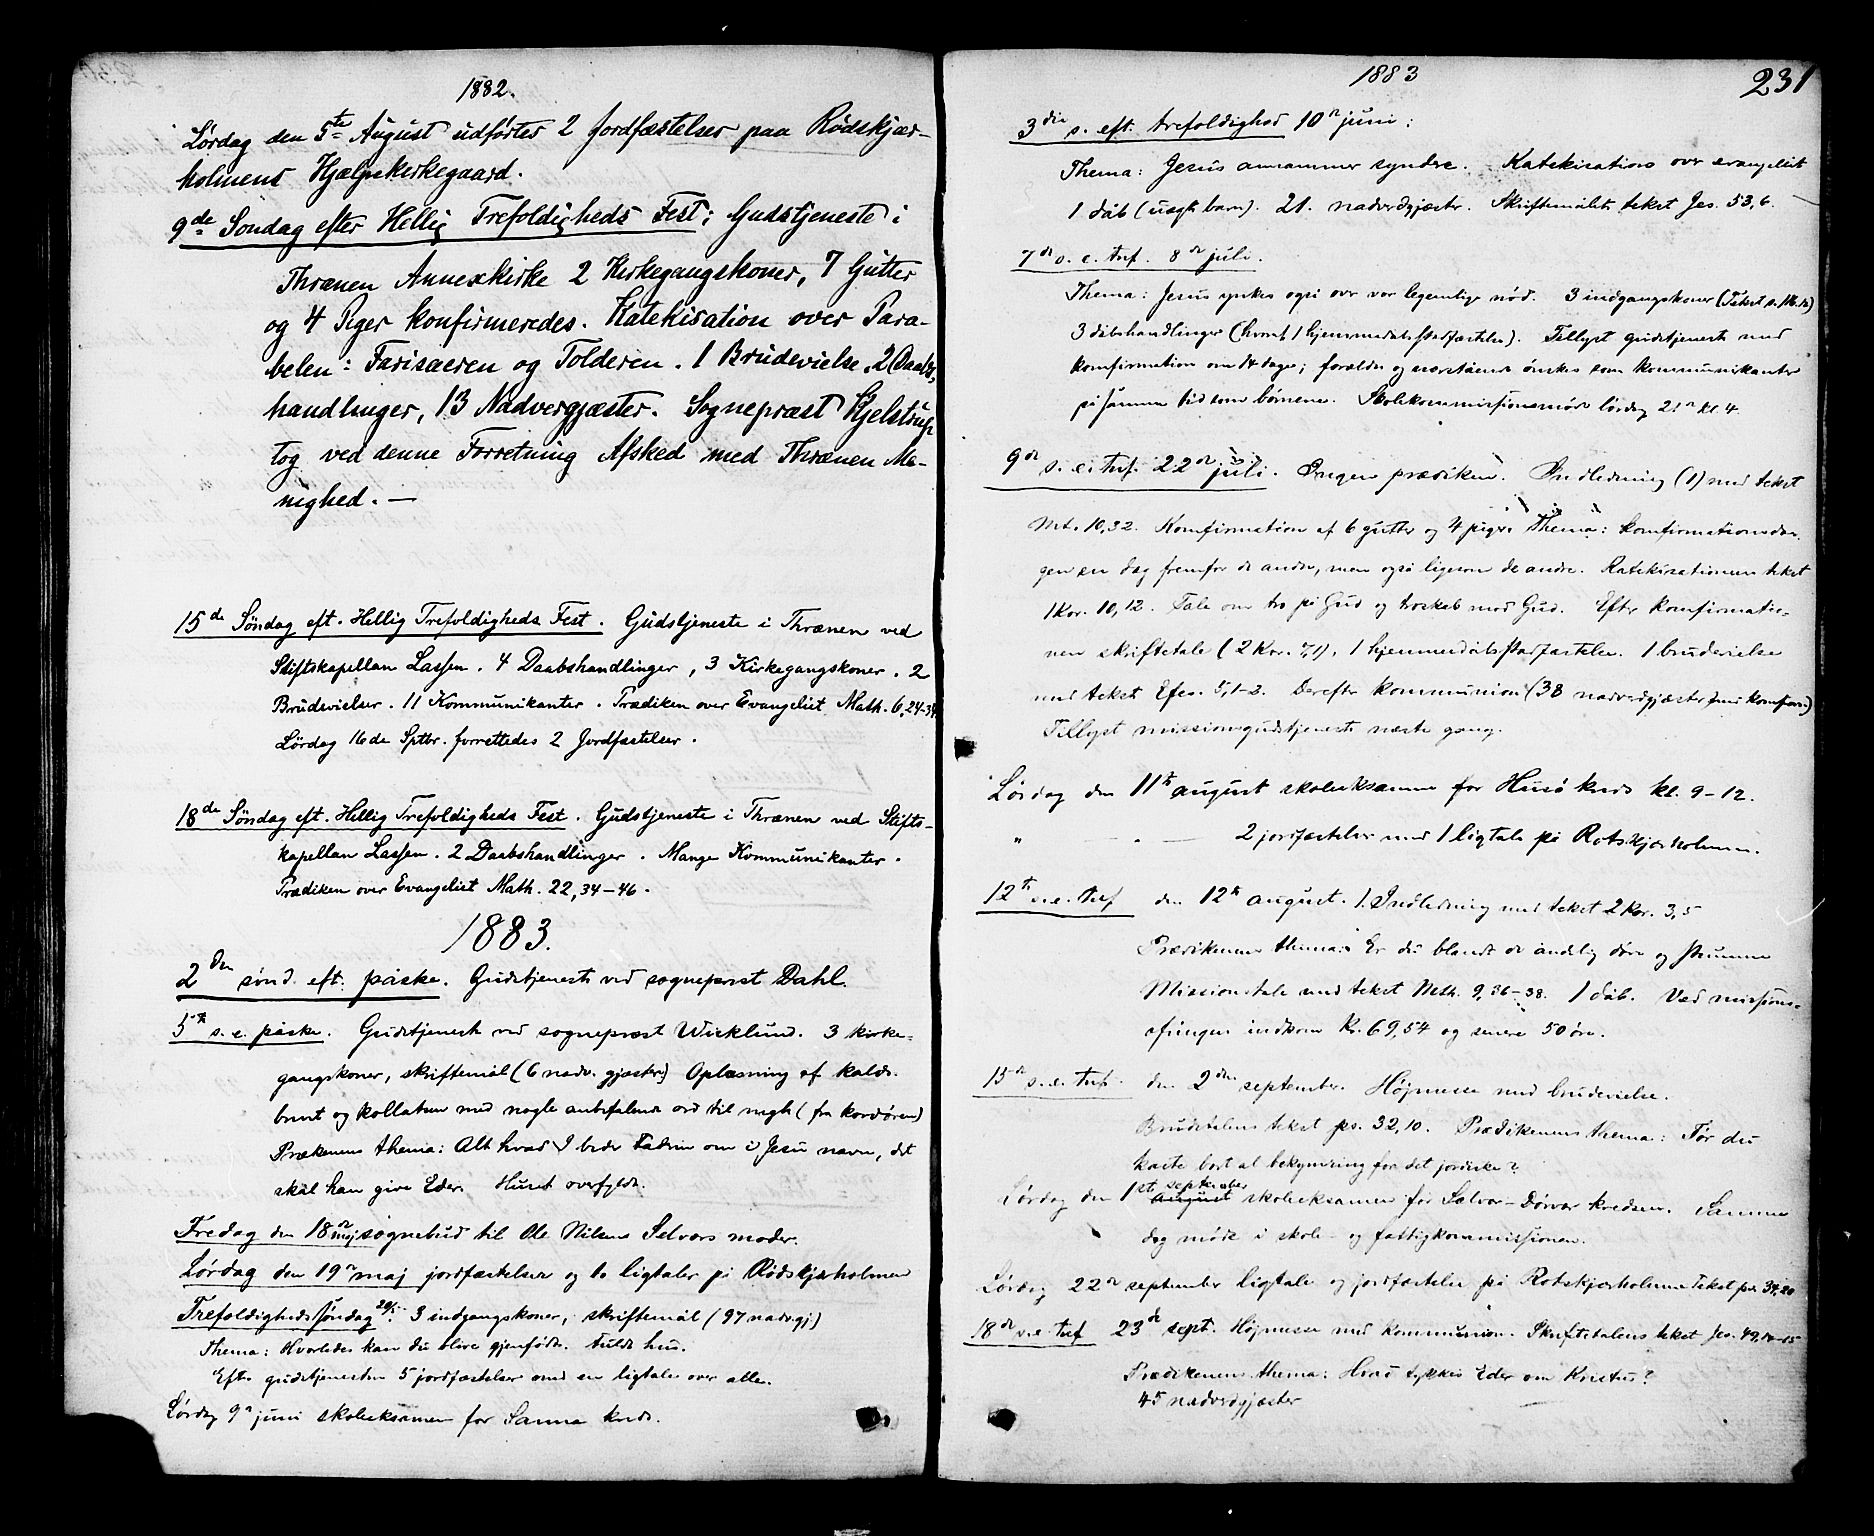 1882.
Lørdag den 5te August udførtes 2 Jordfæstelser paa Rødskjær-
holmens Hjælpekirkegaard.
9de Søndag efter Hellig Trefoldigheds Fest: Gudstjeneste i
Thrænen Annexkirke 2 Kirkegangskoner, 7 Gutter
og 4 Piger konfirmeredes. Katekisation over Para-
belen: Farisæeren og Tolderen. 1 Brudevielse. 2 Daabs-
handlinger, 13 Nadvergjæster. Sognepræst Kjelstrup
tog ved denne Forretning Afsked med Thrænen Me-
nighed. —
15de Søndag eft. Hellig Trefoldigheds Fest. Gudstjeneste i Thrænen ved
Stiftskapellan Lassen. 4 Daabshandlinger, 3 Kirkegangskoner. 2
Brudevielser. 11 Kommunikanter. Prædiken over Evangeliet Math. 6,24-34
Lørdag 16de Sptbr. forrettedes 2 Jordfæstelser.
18de Søndag eft. Hellig Trefoldigheds Fest. Gudstjeneste i Thrænen ved Stifts-
kapellan Lassen. 2 Daabshandlinger. Mange Kommunikanter.
Prædiken over Evangeliet Math. 22,34-46.
1883.
2den sønd. eft. påske. Gudstjeneste ved sogneprest Dahl.
5te s. e. påske. Gudstjeneste ved sogneprest Wicklund. 3 kirke-
gangskoner, skriftemål (6 nadv. gjæster) Oplæsning af kalds-
brevet og kollatsen med nogle anbefalende ord til mgh (fra kordøren)
Prækenens thema: Alt hvad I bede Fadrin om i Jesu navn, det
skal han give Eder. Huset overfyldt.
Fredag den 18n maj sognebud til Ole Nilsens Selvørs moder.
Lørdag den 19n maj jordfæstelser og to ligtaler på Rødskjærholmen
Trefoldighedssøndag 20/5. 3 indgangskoner, skriftemål (97 nadv.gj.)
Thema: Hvorledes kan du blive gjenfødt. fuldt hus.
Efter gudstjenesten 5 jordfæstelser med en ligtale over alle.
Lørdag 9n juni skoleeksamen for Sanna kreds.
1883
231
3die s. eft. trefoldighed 10n juni:
Thema: Jesus annammer syndre. Katekisation over evangeliet
1 dåb (uægte barn). 21. nadverdgjæster. Skriftemålets tekst Jes. 53,6.
7de s. e. tref. 8n juli.
Thema: Jesus ynkes også over vor legemlige nød. 3 indgangskoner
3 dåbshandlinger (hvoraf 1 hjemmedåbsstadfæstelse). Tillyst gudstjeneste med
konfirmation om 14 dage; forældre og nærstående ønskes som kommunikanter
på samme tid som børnene. Skolekommissionsmøde lørdag 21n kl. 4.
9de s. e. tref. 22n juli. Ingen prædiken. Indledning (1) med tekst
Mt. 10,32. Konfirmation af 6 gutter og 4 piger. Thema: konfirmationsda-
gen en dag fremfor de andre, men også ligesom de andre. Katekisationens tekst
1 Kor. 10,12. Tale om tro på Gud og troskab mod Gud. Efter konfirmatio-
nen skriftetale (2 Kor. 7,1), 1 hjemmedåbsstadfæstelse. 1 brudevielse
med tekst Efes. 5,1-2. Derefter kommunion (38 nadverdgjæster
Tillyst missionsgudstjeneste næste gang.
Lørdag den 11te august skoleeksamen for Husø kreds kl. 9-12.
" - — 2 jordfæstelser med 1 ligtale på Rotskjærholmen.
12te s. e. tref den 12te august. 1. Indledning med tekst 2 Kor. 3,5
Prædikenens thema: Er du blandt de åndelig døve og stumme
Missionstale med tekst Mth. 9,36-38. 1 dåb. Ved missions-
ofringen indkom Kr. 69,54 og senere 50 øre.
15de s. e. tref. den 2den september. Højmesse med brudevielse.
Brudetalens tekst ps. 32,10. Prædikenens thema: Tør du
kaste bort al bekymring for det jordiske?
Lørdag den 1st august september skoleeksamen for Selvær-Dørvær kredsen. Samme
dag møde i skole- og fattigkommissionen.
Lørdag 22n september ligtale og jordfæstelse på Rotskjærholmen Tekst ps. 34,20
18de s. e. tref 23de sept. Højmesse med kommunion. Skriftetalens tekst Jes. 49,14-15
Prædikenens thema: Hvad tykkes Eder om Kristus?
45 nadverdgjæster